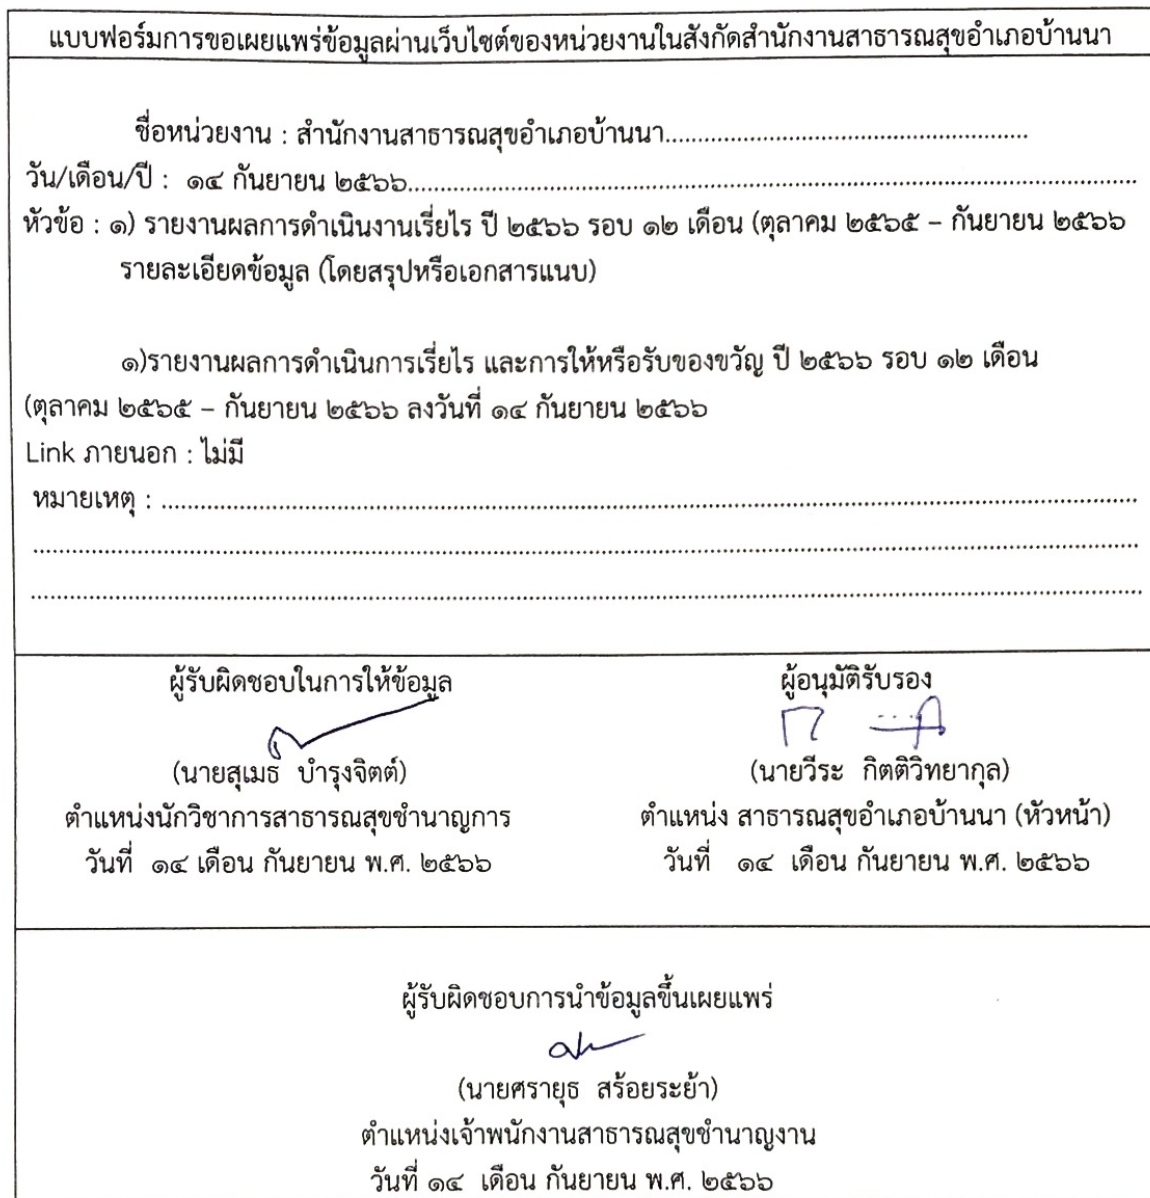 แบบฟอร์มการขอเผยแพร่ข้อมูลผ่านเว็บไซต์ของหน่วยงานในสังกัดสำนักงานสาธารณสุขอำเภอบ้านนา
ชื่อหน่วยงาน : สำนักงานสาธารณสุขอำเภอบ้านนา....................................................
วัน/เดือน/ปี : ๑๔ กันยายน ๒๕๖๖........................................................................................................
หัวข้อ : ๑) รายงานผลการดำเนินงานเรี่ยไร ปี ๒๕๖๖ รอบ ๑๒ เดือน (ตุลาคม ๒๕๖๕ – กันยายน ๒๕๖๖
รายละเอียดข้อมูล (โดยสรุปหรือเอกสารแนบ)
๑)รายงานผลการดำเนินการเรี่ยไร และการให้หรือรับของขวัญ ปี ๒๕๖๖ รอบ ๑๒ เดือน
(ตุลาคม ๒๕๖๕ – กันยายน ๒๕๖๖ ลงวันที่ ๑๔ กันยายน ๒๕๖๖
Link ภายนอก : ไม่มี
หมายเหตุ : ............................................................................................................................................
................................................................................................................................................................
................................................................................................................................................................
ผู้รับผิดชอบในการให้ข้อมูล ผู้อนุมัติรับรอง
(นายสุเมธ บำรุงจิตต์) (นายวีระ กิตติวิทยากุล)
ตำแหน่งนักวิชาการสาธารณสุขชำนาญการ ตำแหน่ง สาธารณสุขอำเภอบ้านนา (หัวหน้า)
วันที่ ๑๔ เดือน กันยายน พ.ศ. ๒๕๖๖ วันที่ ๑๔ เดือน กันยายน พ.ศ. ๒๕๖๖
ผู้รับผิดชอบการนำข้อมูลขึ้นเผยแพร่
(นายศรายุธ สร้อยระย้า)
ตำแหน่งเจ้าพนักงานสาธารณสุขชำนาญงาน
วันที่ ๑๔ เดือน กันยายน พ.ศ. ๒๕๖๖